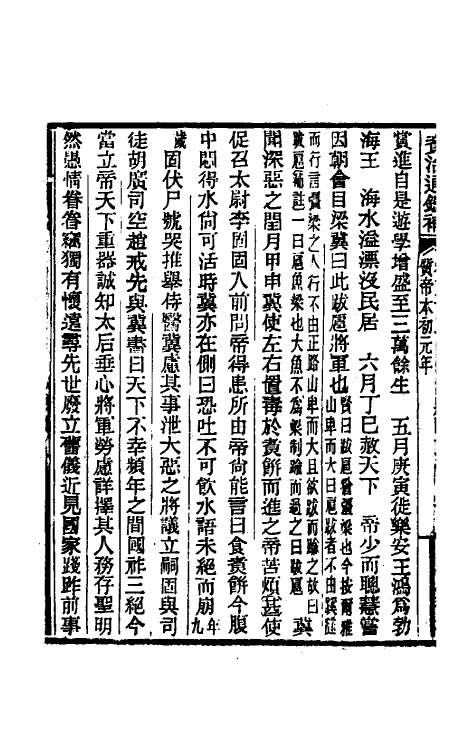 資治通鑑補
質帝本初元年
賞進自是遊學增盛至三萬餘生　五月庚寅徙樂安王鴻爲勃
海王　海水溢漂沒民居　六月丁巳赦天下　帝少而聰慧嘗
因朝會目梁冀曰此跋扈將軍也賢曰跋扈猶彊梁也今按爾雅
山卑而大曰扈跋者不由蹊隧
而行言彊梁之人行不由正路山卑而大且欲跋而踰之故曰
跋扈補註一曰扈魚梁也大魚不爲梁制踰而過之曰跋扈　冀
聞深惡之閏月甲申冀使左右置毒於煑餅而進之帝苦煩甚使
促召太尉李固固入前問帝得患所由帝尙能言曰食煑餅今腹
中悶得水尙可活時冀亦在側曰恐吐不可飲水語未絕而崩年
九
歲　固伏尸號哭推舉侍醫冀慮其事泄大惡之將議立嗣固與司
徒胡廣司空趙戒先與冀書曰天下不幸頻年之間國祚三絕今
當立帝天下重器誠知太后垂心將軍勞慮詳擇其人務存聖明
然愚情眷眷竊獨有懷遠尋先世廢立舊儀近見國家踐阼前事